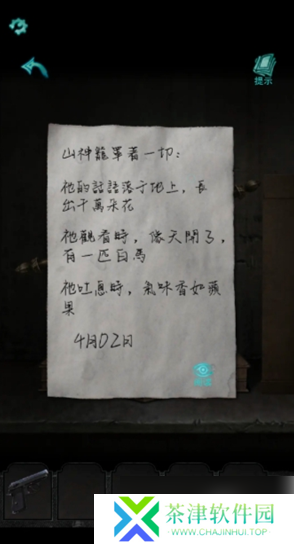 提示
山神籠罩着一切:
祂的話語落于地上，長
出千萬朵花
祂觀看時，像天閉了，
有一匹白馬
祂吐息時，氣味香如蘋
果
4月02日
茶津软件园
WWW.CHAJINHUI.TOP